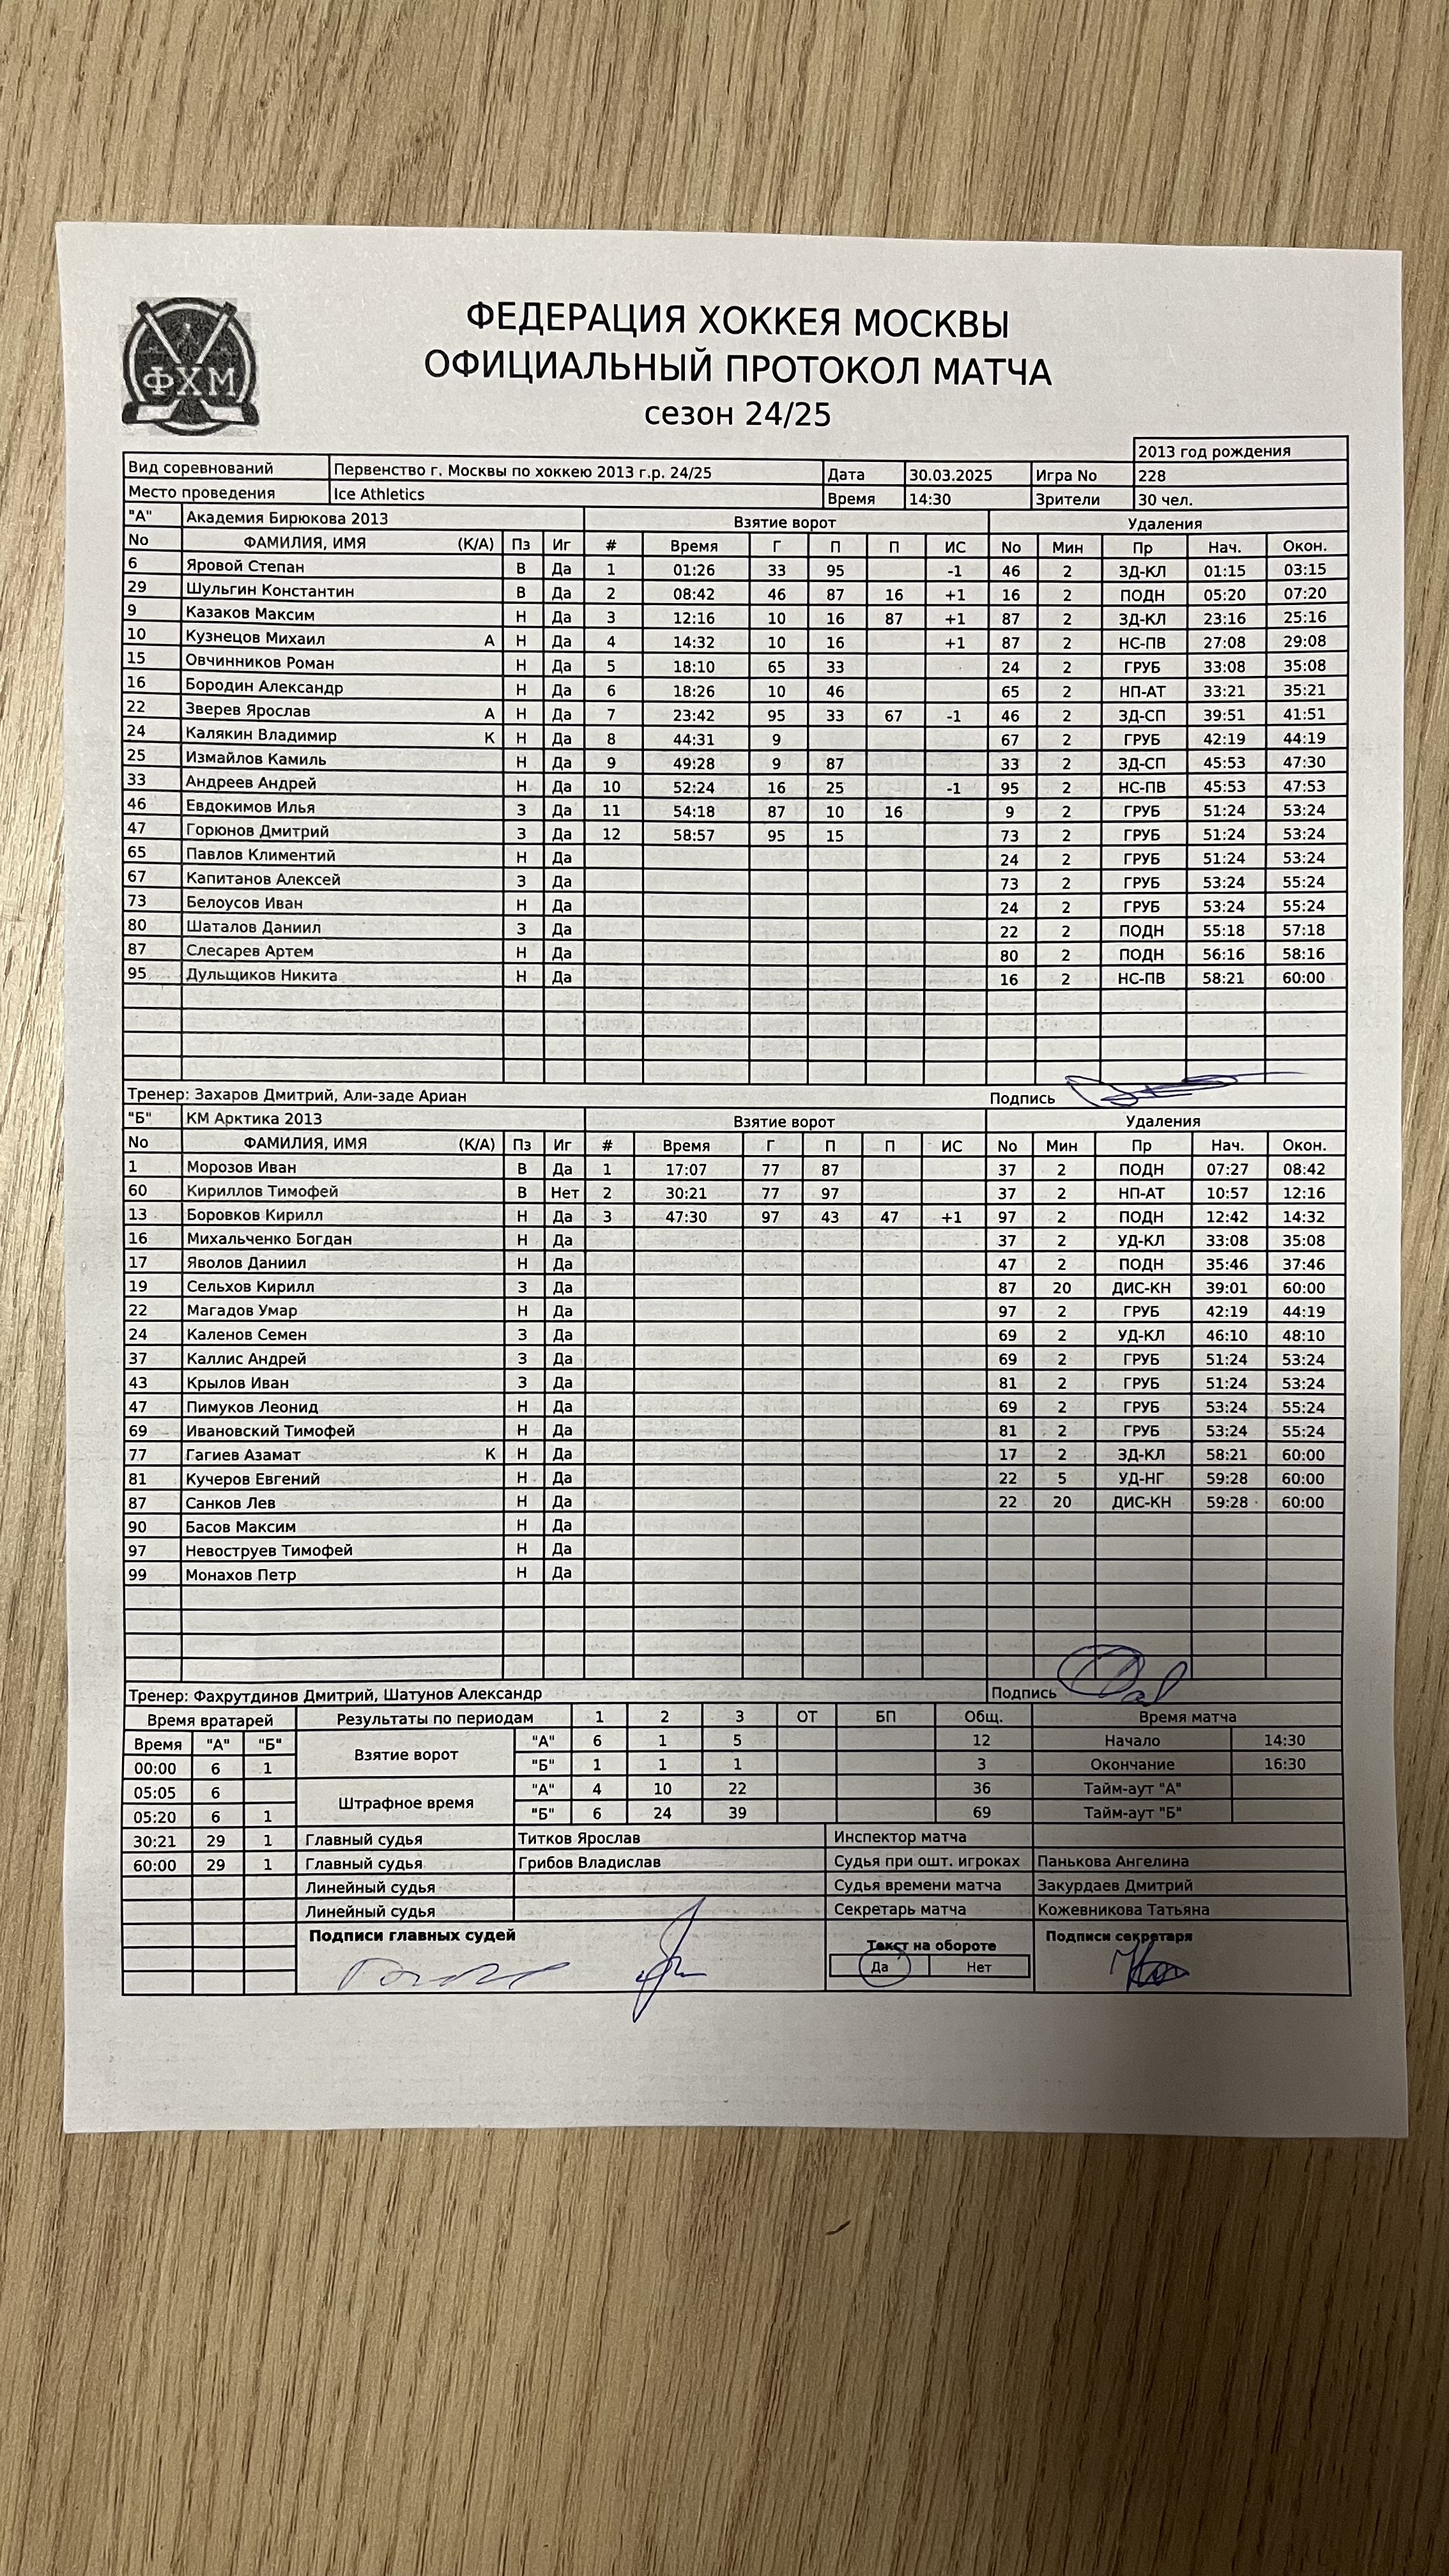 ФХМ
ФЕДЕРАЦИЯ ХОККЕЯ МОСКВЫ
ОФИЦИАЛЬНЫЙ ПРОТОКОЛ МАТЧА
сезон 24/25
2013 год рождения
Вид соревнований Первенство г. Москвы по хоккею 2013 г.р. 24/25 Дата 30.03.2025 Игра No 228
Место проведения Ice Athletics Время 14:30 Зрители 30 чел.
"А" Академия Бирюкова 2013 Взятие ворот Удаления
No ФАМИЛИЯ, ИМЯ (К/А) Пз Иг # Время Г П П ИС No Мин Пр Нач. Окон.
6 Яровой Степан В Да 1 01:26 33 95 -1 46 2 ЗД-КЛ 01:15 03:15
29 Шульгин Константин В Да 2 08:42 46 87 16 +1 16 2 ПОДН 05:20 07:20
9 Казаков Максим Н Да 3 12:16 10 16 87 +1 87 2 ЗД-КЛ 23:16 25:16
10 Кузнецов Михаил А Н Да 4 14:32 10 16 +1 87 2 НС-ПВ 27:08 29:08
15 Овчинников Роман Н Да 5 18:10 65 33 24 2 ГРУБ 33:08 35:08
16 Бородин Александр Н Да 6 18:26 10 46 65 2 НП-АТ 33:21 35:21
22 Зверев Ярослав А Н Да 7 23:42 95 33 67 -1 46 2 ЗД-СП 39:51 41:51
24 Калякин Владимир К Н Да 8 44:31 9 67 2 ГРУБ 42:19 44:19
25 Измайлов Камиль Н Да 9 49:28 9 87 33 2 ЗД-СП 45:53 47:30
33 Андреев Андрей Н Да 10 52:24 16 25 -1 95 2 НС-ПВ 45:53 47:53
46 Евдокимов Илья З Да 11 54:18 87 10 16 9 2 ГРУБ 51:24 53:24
47 Горюнов Дмитрий З Да 12 58:57 95 15 73 2 ГРУБ 51:24 53:24
65 Павлов Климентий Н Да 24 2 ГРУБ 51:24 53:24
67 Капитанов Алексей З Да 73 2 ГРУБ 53:24 55:24
73 Белоусов Иван Н Да 24 2 ГРУБ 53:24 55:24
80 Шаталов Даниил З Да 22 2 ПОДН 55:18 57:18
87 Слесарев Артем Н Да 80 2 ПОДН 56:16 58:16
95 Дульщиков Никита Н Да 16 2 НС-ПВ 58:21 60:00
Тренер: Захаров Дмитрий, Али-заде Ариан Подпись
"Б" КМ Арктика 2013 Взятие ворот Удаления
No ФАМИЛИЯ, ИМЯ (К/А) Пз Иг # Время Г П П ИС No Мин Пр Нач. Окон.
1 Морозов Иван В Да 1 17:07 77 87 37 2 ПОДН 07:27 08:42
60 Кириллов Тимофей В Нет 2 30:21 77 97 37 2 НП-АТ 10:57 12:16
13 Боровков Кирилл Н Да 3 47:30 97 43 47 +1 97 2 ПОДН 12:42 14:32
16 Михальченко Богдан Н Да 37 2 УД-КЛ 33:08 35:08
17 Яволов Даниил Н Да 47 2 ПОДН 35:46 37:46
19 Сельхов Кирилл З Да 87 20 ДИС-КН 39:01 60:00
22 Магадов Умар Н Да 97 2 ГРУБ 42:19 44:19
24 Каленов Семен З Да 69 2 УД-КЛ 46:10 48:10
37 Каллис Андрей З Да 69 2 ГРУБ 51:24 53:24
43 Крылов Иван З Да 81 2 ГРУБ 51:24 53:24
47 Пимуков Леонид Н Да 69 2 ГРУБ 53:24 55:24
69 Ивановский Тимофей Н Да 81 2 ГРУБ 53:24 55:24
77 Гагиев Азамат К Н Да 17 2 ЗД-КЛ 58:21 60:00
81 Кучеров Евгений Н Да 22 5 УД-НГ 59:28 60:00
87 Санков Лев Н Да 22 20 ДИС-КН 59:28 60:00
90 Басов Максим Н Да
97 Невоструев Тимофей Н Да
99 Монахов Петр Н Да
Тренер: Фахрутдинов Дмитрий, Шатунов Александр Подпись
Время вратарей Результаты по периодам 1 2 3 ОТ БП Общ. Время матча
Время "А" "Б" Взятие ворот "А" 6 1 5 12 Начало 14:30
00:00 6 1 "Б" 1 1 1 3 Окончание 16:30
05:05 6 Штрафное время "А" 4 10 22 36 Тайм-аут "А"
05:20 6 1 "Б" 6 24 39 69 Тайм-аут "Б"
30:21 29 1 Главный судья Титков Ярослав Инспектор матча
60:00 29 1 Главный судья Грибов Владислав Судья при ошт. игроках Панькова Ангелина
Линейный судья Судья времени матча Закурдаев Дмитрий
Линейный судья Секретарь матча Кожевникова Татьяна
Подписи главных судей Текст на обороте Подписи секретаря
Да Нет